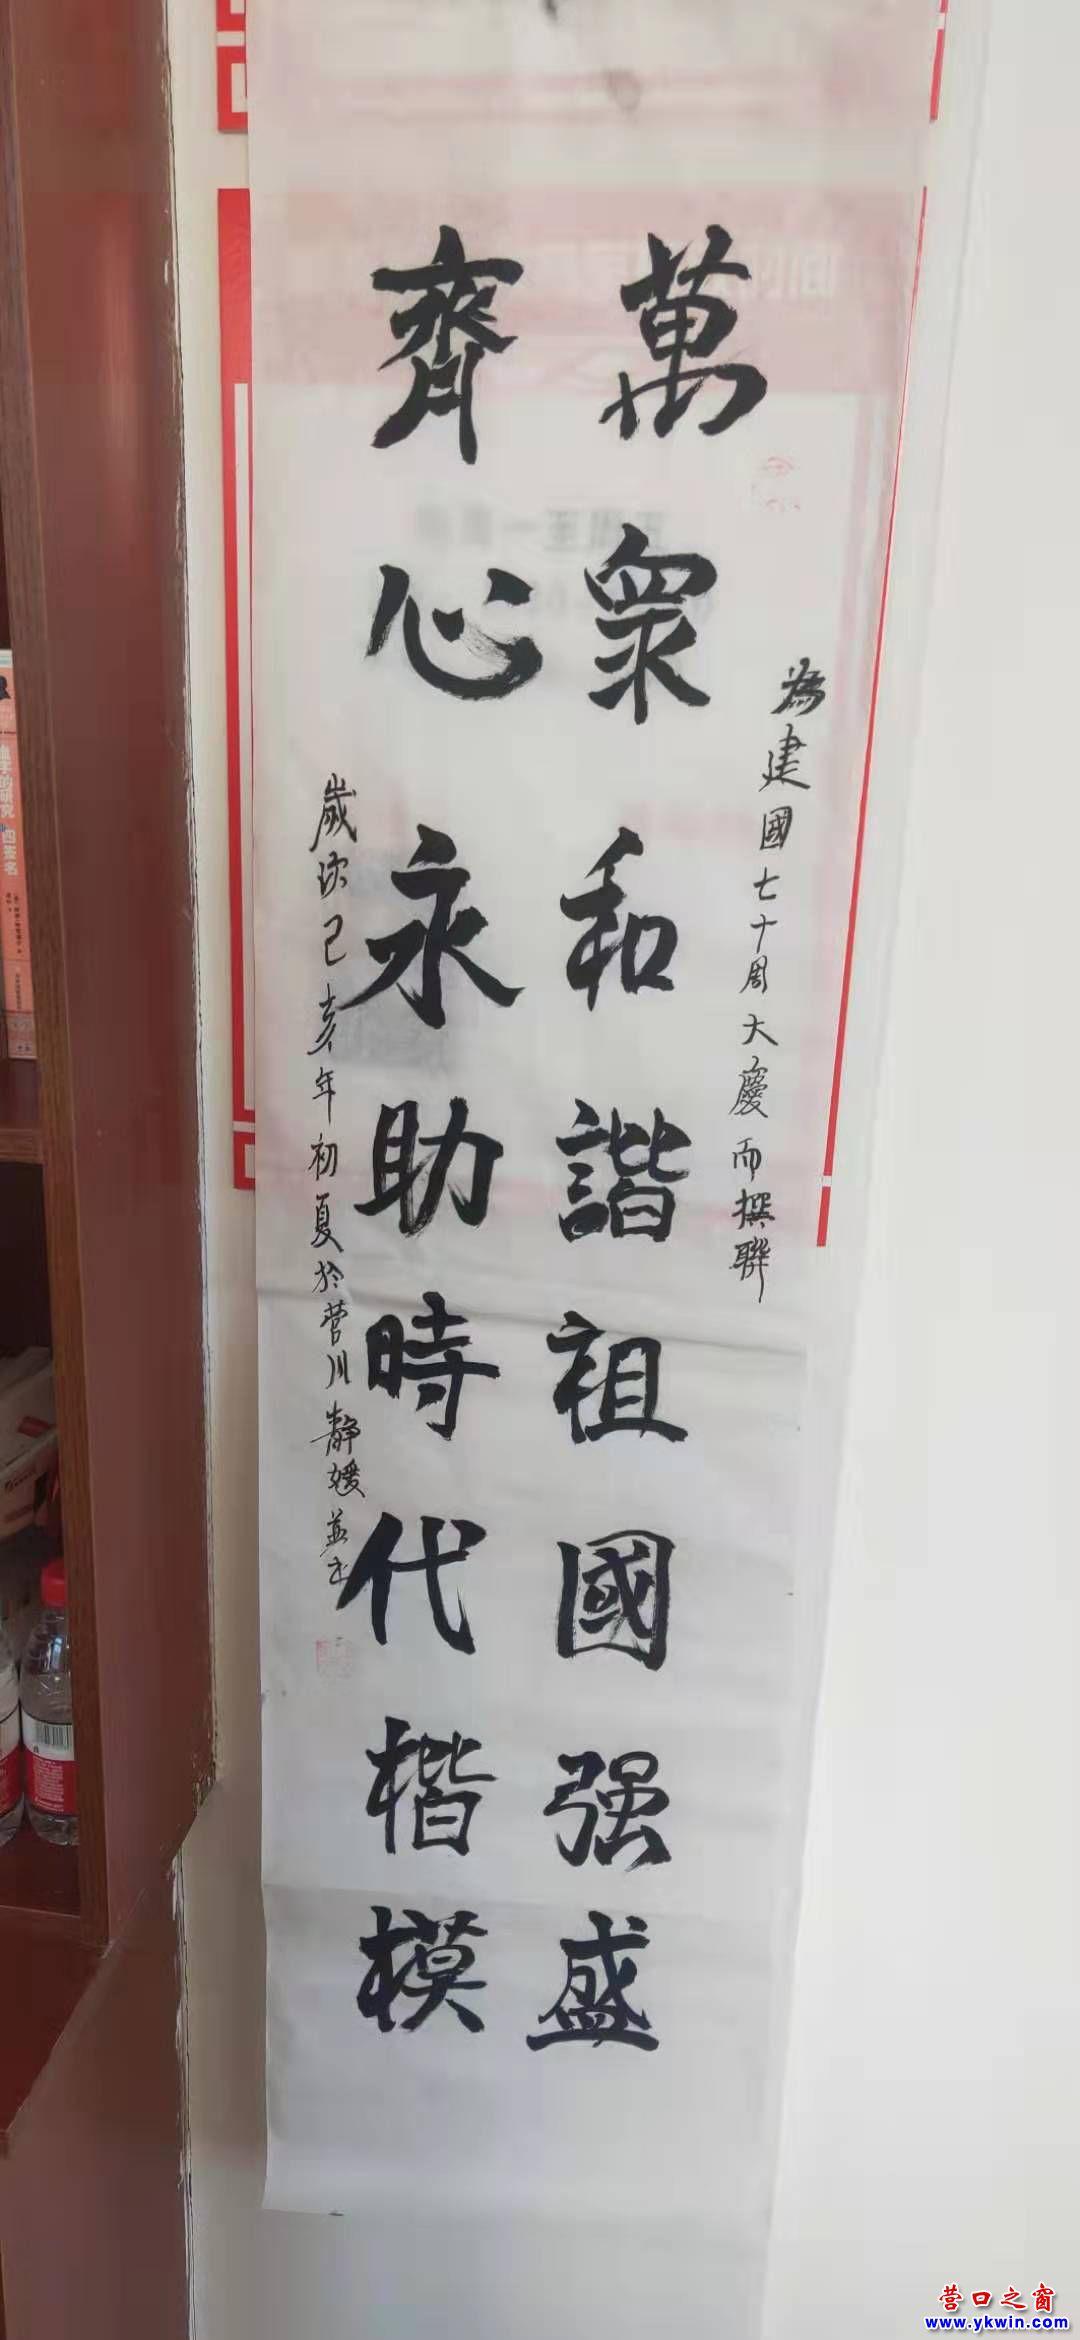 為建國七十周大慶而撰聯
萬衆和諧祖國强盛
齊心永助時代楷模
歲次己亥年初夏於营川靜媛並书
四签名
营口之窗
www.ykwin.com